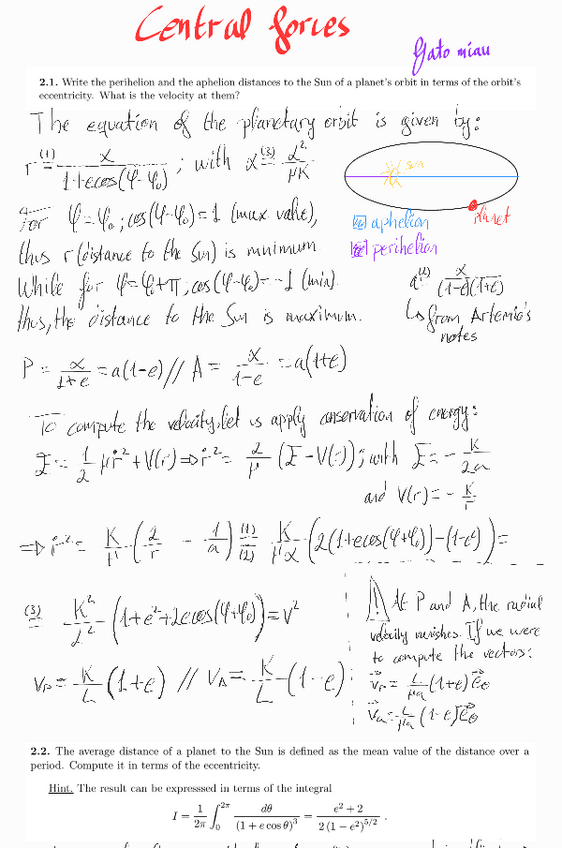 Central forces
Gato miau
2.1. Write the perihelion and the aphelion distances to the Sun of a planet's orbit in terms of the orbit's
eccentricity. What is the velocity at them?
The equation of the planetary orbit is given by:
r (1)= α/(1+e cos(φ-φ₀)) ; with α (3)= L²/μK
Sun
planet
aphelion
perihelion
For φ=φ₀; cos(φ-φ₀)=1 (max value),
thus r (distance to the Sun) is minimum.
While for φ=φ₀+π, cos(φ-φ₀)=-1 (min).
thus, the distance to the Sun is maximum.
a (2)= α/((1-e)(1+e))
↳ from Artemio's
notes
P = α/(1+e) = a(1-e) // A = α/(1-e) = a(1+e)
To compute the velocity, let us apply conservation of energy:
E = 1/2 μṙ² + V(r) ⇒ ṙ² = 2/μ (E - V(r)); with E = - K/2a
and V(r) = - K/r
⇒ ṙ² = K/μ (2/r - 1/a) (1)=(2) K/μα (2(1+e cos(φ+φ₀)) - (1-e²)) =
(3)= K²/L² (1+e²+2e cos(φ+φ₀)) = v²
v_P = K/L (1+e) // v_A = K/L (1-e)
At P and A, the radial
velocity vanishes. If we were
to compute the vectors:
v⃗_P = L/μα (1+e) e⃗_θ
v⃗_a = L/μα (1-e) e⃗_θ
2.2. The average distance of a planet to the Sun is defined as the mean value of the distance over a
period. Compute it in terms of the eccentricity.
Hint. The result can be expresssed in terms of the integral
I = 1/2π ∫₀^2π dθ/(1 + e cos θ)³ = (e² + 2)/(2 (1 − e²)^5/2) .